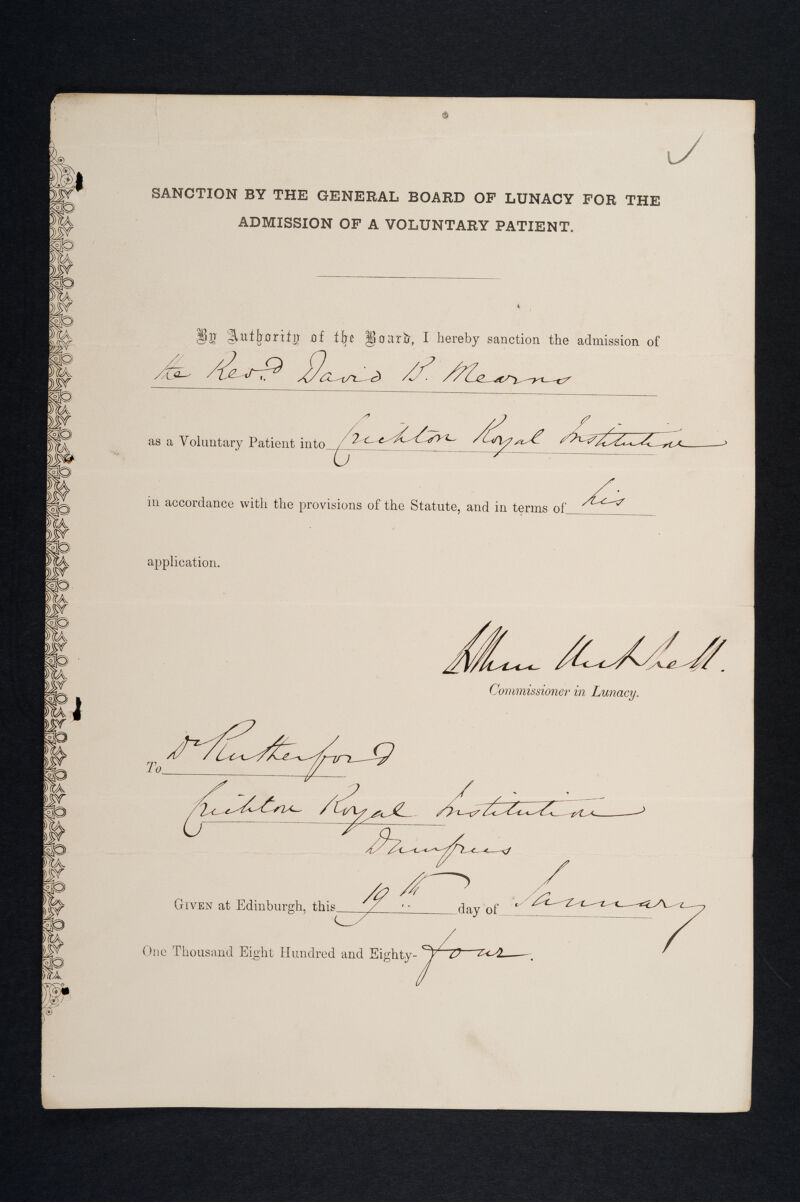 SANCTION BY THE GENERAL BOARD OF LUNACY FOR THE
ADMISSION OF A VOLUNTARY PATIENT.
By Authority of the Board, I hereby sanction the admission of
the Revd. David B. Mearns
as a Voluntary Patient into Crichton Royal Institution
in accordance with the provisions of the Statute, and in terms of his
application.
Arthur Mitchell.
Commissioner in Lunacy.
To Dr Rutherford
Crichton Royal Institution
Dumfries
GIVEN at Edinburgh, this 19th day of January
One Thousand Eight Hundred and Eighty-four.